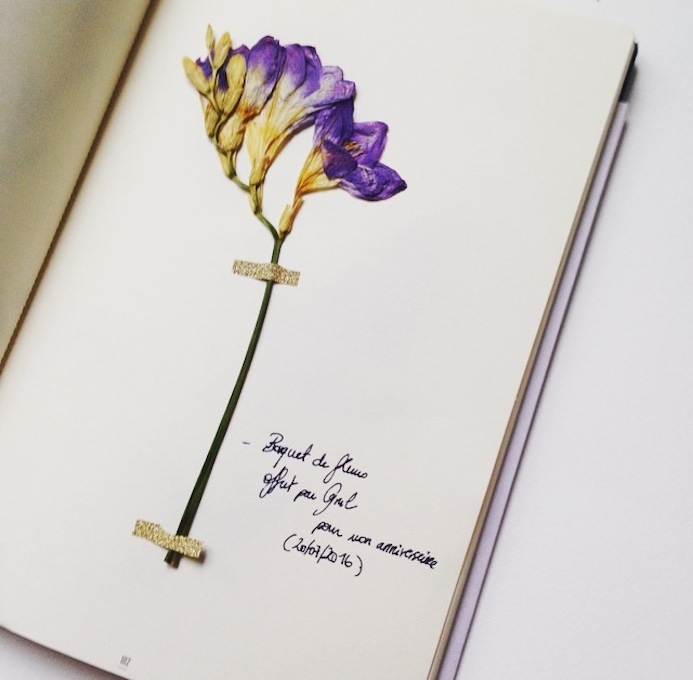 - Bouquet de fleurs
offert par
pour mon anniversaire
(20/07/2016)
102